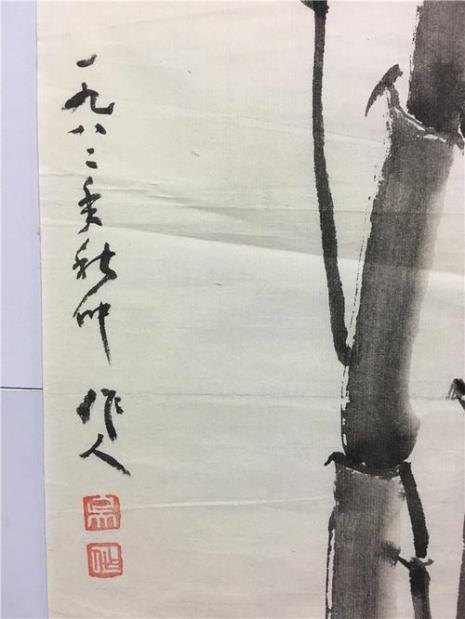 一九八二年秋仲 作人
吴